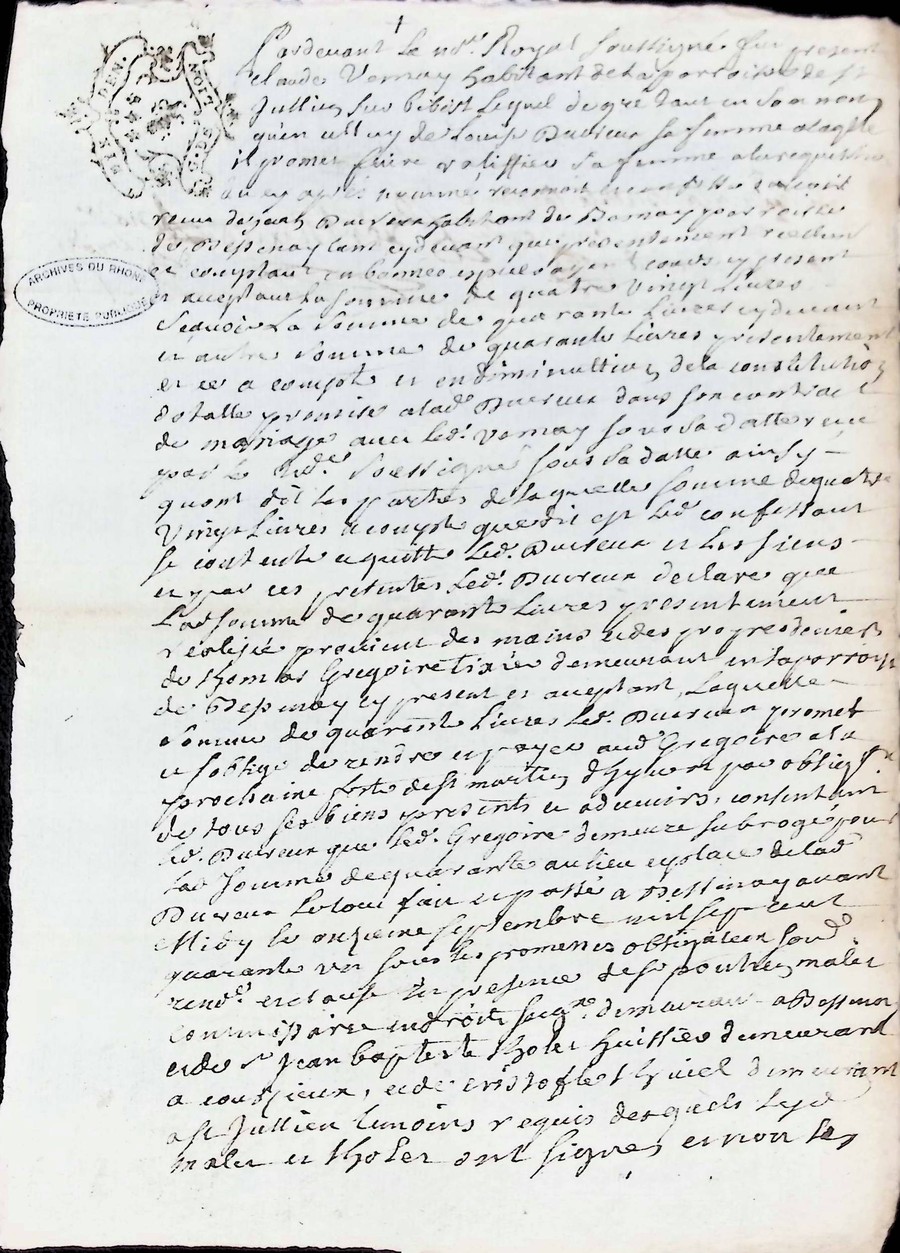 GEN. DE LYON
NOIT. DEUX S.
ARCHIVES DU RHONE
PROPRIETE PUBLIQUE
Pardevant Le no.re Royal soussigné fut present
claude Vernay habitant de la parroisse de st
Jullien sur bibost Lequel de gré tant en son nom
quen celluy de Louise Ducreux sa femme a laq.lle
il promet faire ratiffier sa femme a la requisition
du cy apres nommé, reconnoit et confesse avoir
receu de jean Ducreux habitant de Bernay parroisse
de Bessenay tant cydevant que presentement reellem.t
et comptant en bonnes especes ayant cours cy present
et aceptant la somme de quatre Vingt Livres
Sçavoir La somme de quarante Livres cydevant
et autre somme de quarante Livres presentement
et ce a compte et en diminuttion de la constitution
dotalle promise a lad.e Ducreux dans son contract
de mariage avec led.t Vernay sous sa datte receu
par le no.re soussigné sous sa datte ainsy
quont dit les parties de laquelle somme de quatre
Vingt Livres a compte que dit est led.t confessant
se contente et quitte led.t Ducreux et les siens
et par ces presentes led.t Ducreux declare que
Lad somme de quarante Livres presentement
réelisée provient des mains et des propres deniers
de thomas Gregoire tixier demeurant en la parroisse
de Bessenay cy present et aceptant, Laquelle
somme de quarante Livres led.t Ducreux promet
et soblige de rendre et payer aud.t Gregoire a la
prochaine feste de st martin dhyvert par oblig.on
de tous ses biens presents et advenirs, consentant
led.t Ducreux que led.t Gregoire demeure subrogé pour
Lad somme de quarante au lieu et place delad
Ducreux Le tout fait et passé a Bessenay avant
Midy le onzieme septembre mil sept cent
quarante sous les promesses obligation soud.
rend.e et clause En presence de sr maler
commissaire en droits seig.re demeurant a Bessenay
et de sr Jean baptiste tholer huissier demeurant
a couzieux, et de cristofle demeurant
a st Jullien temoins requis desquels lesd
maler et tholer ont signés et non les